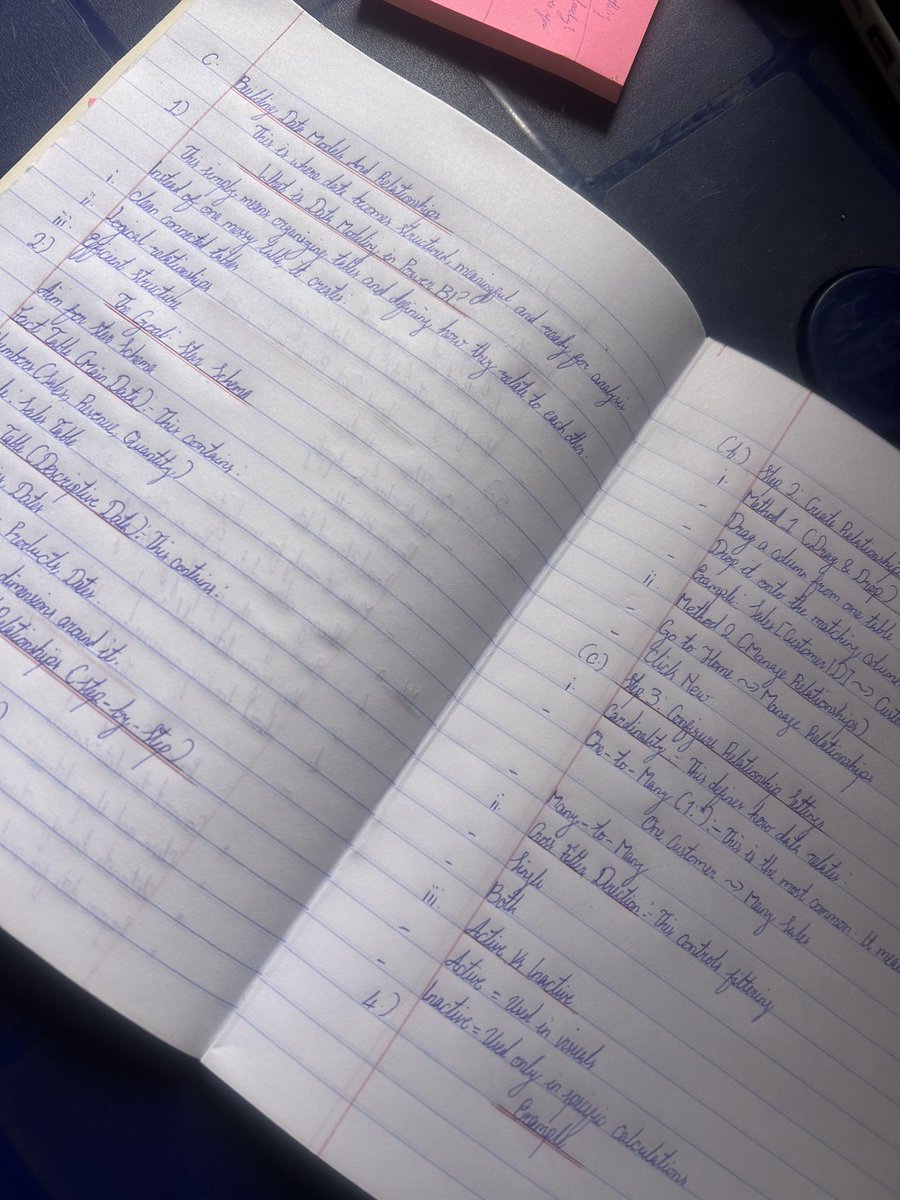 C. Building Data Models And Relationships
This is where data becomes structured, meaningful and ready for analysis
1) What is Data Modeling in Power BI?
This simply means organizing tables and defining how they relate to each other.
Instead of one messy table, it creates:
i. Clean connected tables
ii. Logical relationships
iii. Efficient structure
2) The Goal: Star Schema
Aim for star Schema
Fact Table (Main Data):- This contains:
(Sales, Revenue, Quantity)
Sales Table
Table (Descriptive Data):- This contains:
Dates
Products, Dates
dimensions around it.
Relationships (Step-by-Step)
(b) Step 2: Create Relationships
i. Method 1 (Drag & Drop)
- Drag a column from one table
- Drop it onto the matching column
Example: Sales [Customer ID] →
ii. Method 2 (Manage Relationships)
- Go to Home → Manage Relationships
- Click New
(c) Step 3: Configure Relationship Settings
i. Cardinality:- This defines how data relates:
- One-to-Many (1:*):- This is the most common. It
One Customer → Many Sales
- Many-to-Many
ii. Cross Filter Direction:- This controls filtering
- Single
- Both
iii. Active Vs Inactive
- Active = Used in visuals
- Inactive = Used only in specific calculations
4) Example